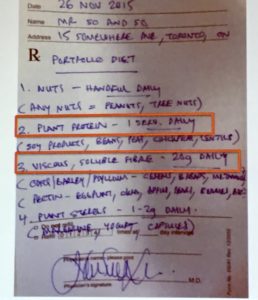 Date 26 NOV 2015
Name MR SO AND SO
Address 15 SOMEWHERE AVE, TORONTO, ON
Rx PORTFOLIO DIET
1. NUTS - HANDFUL DAILY
(ANY NUTS = PEANUTS, TREE NUTS)
2. PLANT PROTEIN - 1 SERV. DAILY
(SOY PRODUCTS, BEANS, PEAS, CHICKPEAS, LENTILS)
3. VISCOUS, SOLUBLE FIBRE - 20g DAILY
(OATS/BARLEY/PSYLLIUM - CEREALS, BREADS,
(PECTIN - EGGPLANT, OKRA, APPLES,
4. PLANT STEROLS - 2g DAILY
(MARGARINE, YOGURT, CAPSULES)
day intervals
M.D.
Physician's signature